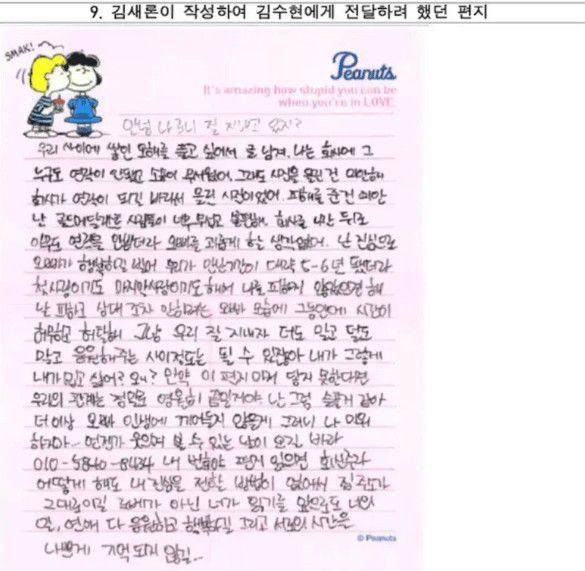 9. 김새론이 작성하여 김수현에게 전달하려 했던 편지
SMAK!
Peanuts
It's amazing how stupid you can be
when you're in LOVE.
안녕 나 잘 지내고 있지?
우리 사이에 쌓인 오해를 풀고 싶어서 글 남겨. 나는 회사에 그
누구도 연락이 안됐고 소송이 무서웠어. 그래도 사진을 올린 건 미안해
회사가 연락이 되길 바라서 올린 사진이었어. 피해를 준건 미안
난 골드메달리스트 사람들이 너무 무섭고 불편해. 회사를 나간 뒤로
아무도 연락을 안받더라 오빠를 괴롭게 하는 생각 없어. 난 진심으로
오빠가 행복하길 빌어 우리가 만난기간이 대략 5-6년 됐더라
첫사랑이기도 마지막사랑이기도 해서 나를 피하지 않았으면 해
날 피하고 상대 조차 안하려는 오빠 모습에 그동안에 시간이
허무하고 허탈해 그냥 우리 잘 지내자 더도 말고 덜도
말고 응원해주는 사이정도는 될 수 있잖아 내가 그렇게
내가 밉고 싫어? 왜? 만약 이 편지마저 닿지 못한다면
우리의 관계는 정말로 영원히 끝일거야 난 그럼 슬플거 같아
더이상 오빠 인생에 끼어들지 않을게 그러니 나 미워
하지마.. 언젠가 웃으며 볼 수 있는 날이 오길 바라
010-5840-8434 내 번호야 편지 읽으면 회신주라
어떻게 해도 내 진심을 전할 방법이 없어서 집 주소가
그대로이길 로베가 아닌 너가 읽기를 앞으로도 너의
일, 연애 다 응원하고 행복하길 그리고 서로의 시간은
나쁘게 기억되지 않길...
© Peanuts